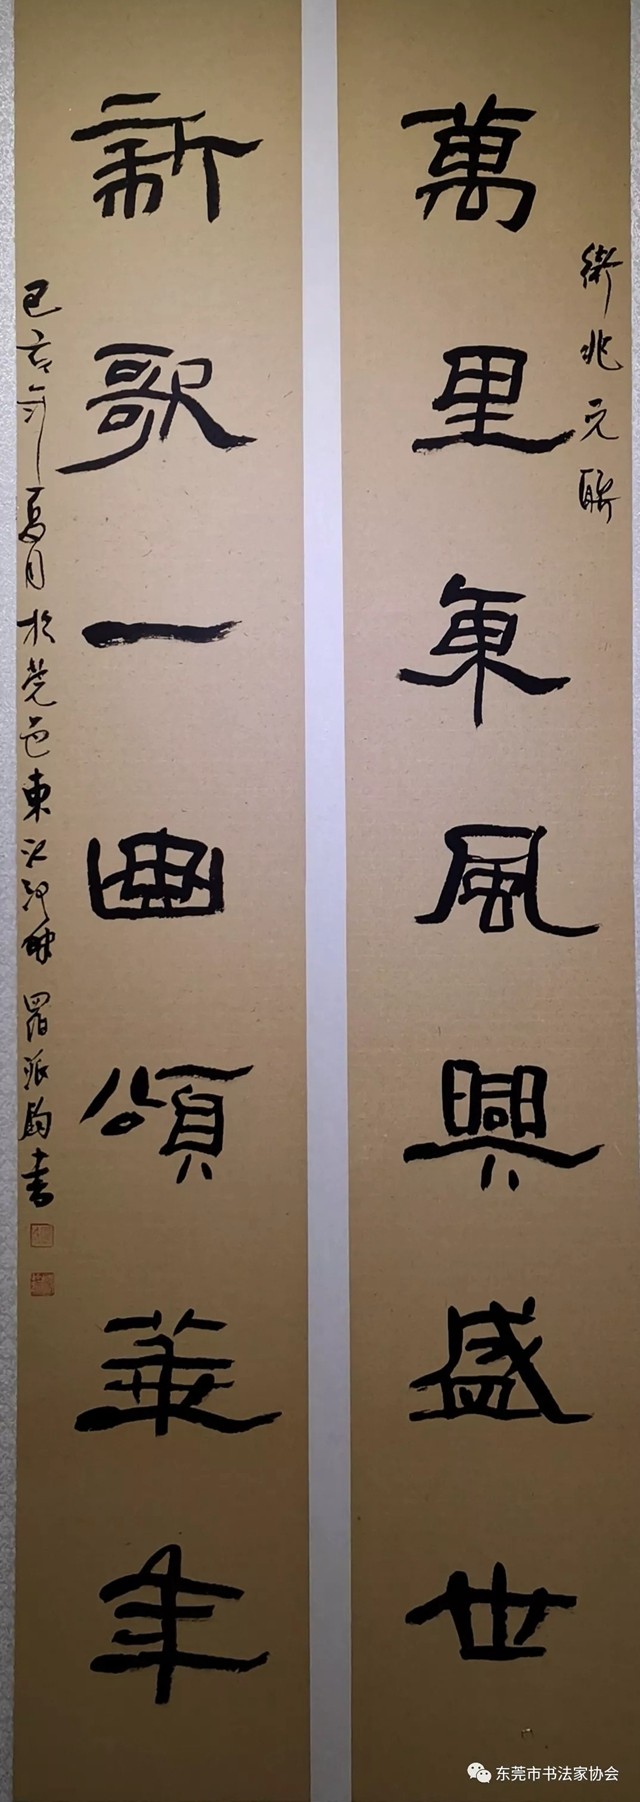 衛兆元聯
萬里東風興盛世
新歌一曲頌華年
己亥年夏月於莞邑東江河畔羅派鈞書
东莞市书法家协会